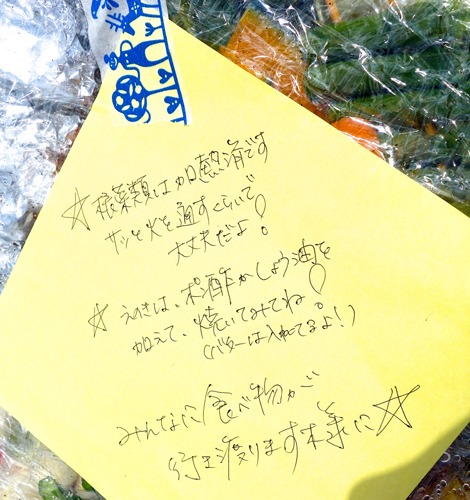 ☆根菜類は加熱済です
サッと火を通すくらいで
大丈夫だよ!
☆えのきは、ポン酢かしょう油を
加えて、焼いてみてね!
(バターは入れてるよ!)
みんなに食べ物が
行き渡ります様に☆